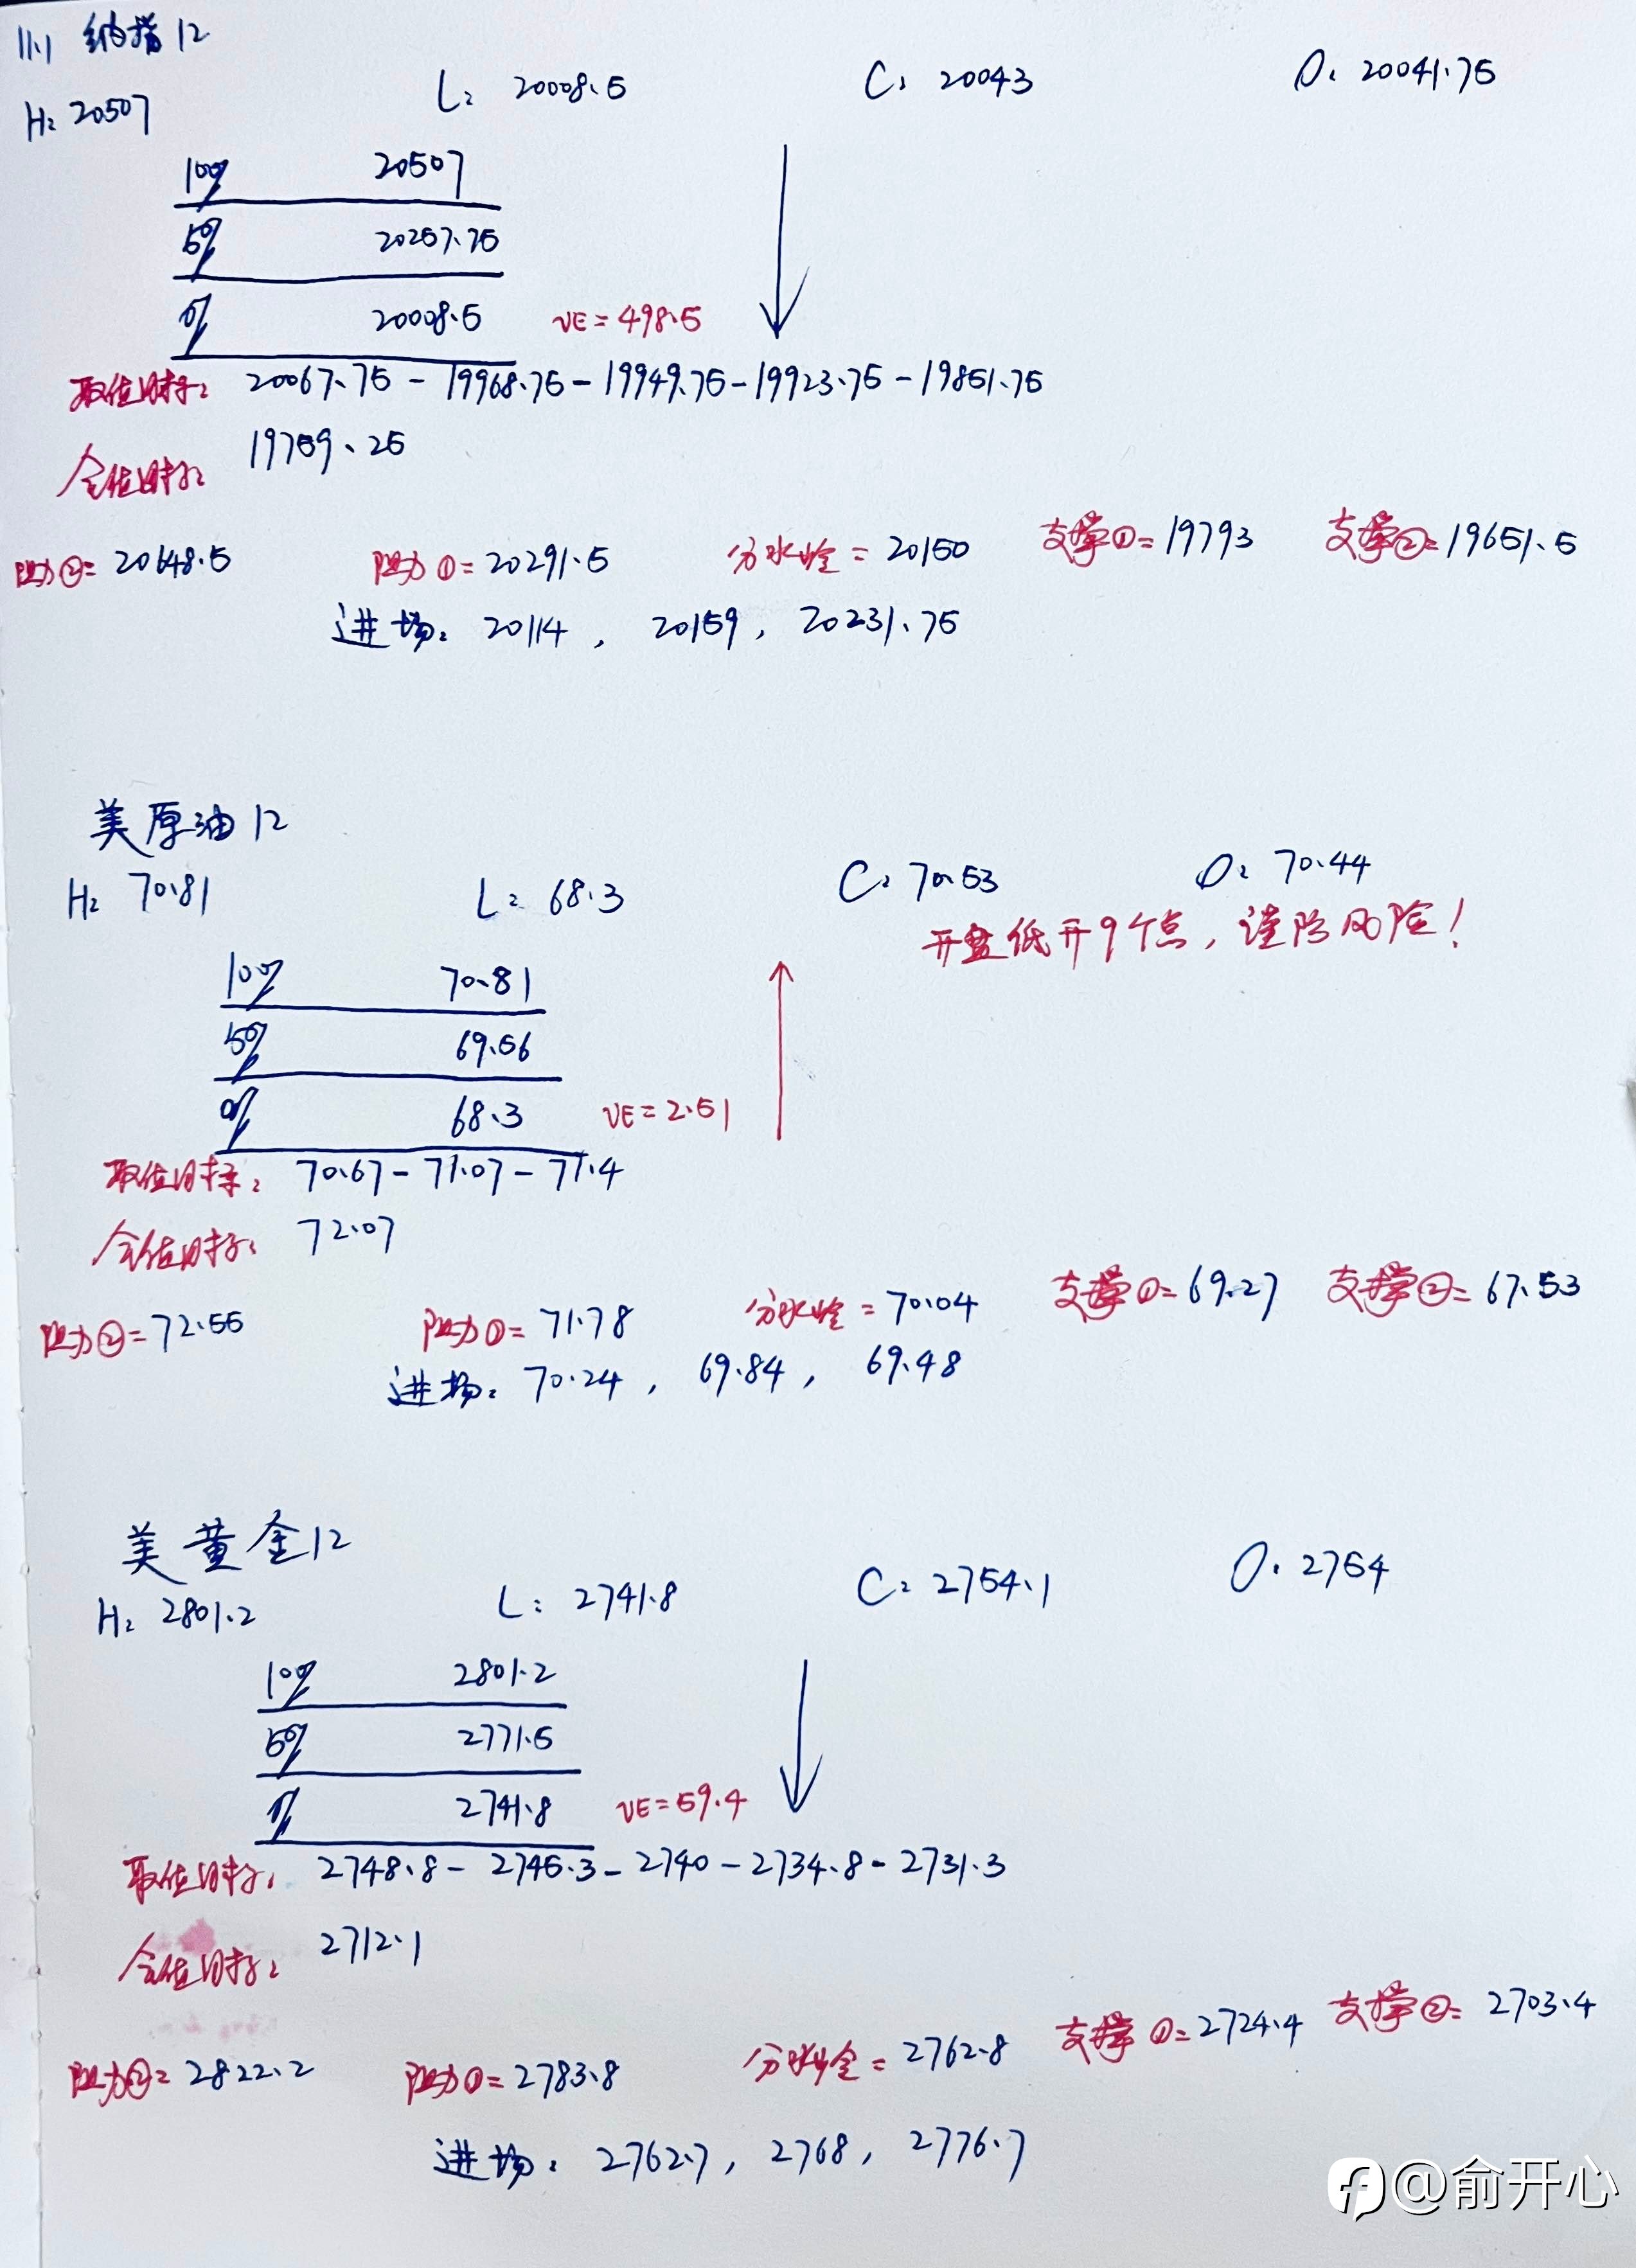 11.1 纳指12
H: 20507 L: 20008.5 C: 20043 O: 20041.75
100% 20507
50% 20257.75
0% 20008.5 VE=498.5
取位目标: 20067.75-19968.75-19949.75-19923.75-19851.75
全位目标: 19759.25
阻力②=20648.5 阻力①=20291.5 分水岭=20150 支撑①=19793 支撑②=19651.5
进场: 20114, 20159, 20231.75
美原油12
H: 70.81 L: 68.3 C: 70.53 O: 70.44
开盘低开9个点,谨防风险!
100% 70.81
50% 69.56
0% 68.3 VE=2.51
取位目标: 70.67-71.07-71.4
全位目标: 72.07
阻力②=72.55 阻力①=71.78 分水岭=70.04 支撑①=69.27 支撑②=67.53
进场: 70.24, 69.84, 69.48
美黄金12
H: 2801.2 L: 2741.8 C: 2754.1 O: 2754
100% 2801.2
50% 2771.5
0% 2741.8 VE=59.4
取位目标: 2748.8-2745.3-2740-2734.8-2731.3
全位目标: 2712.1
阻力②=2822.2 阻力①=2783.8 分水岭=2762.8 支撑①=2724.4 支撑②=2703.4
进场: 2762.7, 2768, 2776.7
@俞开心